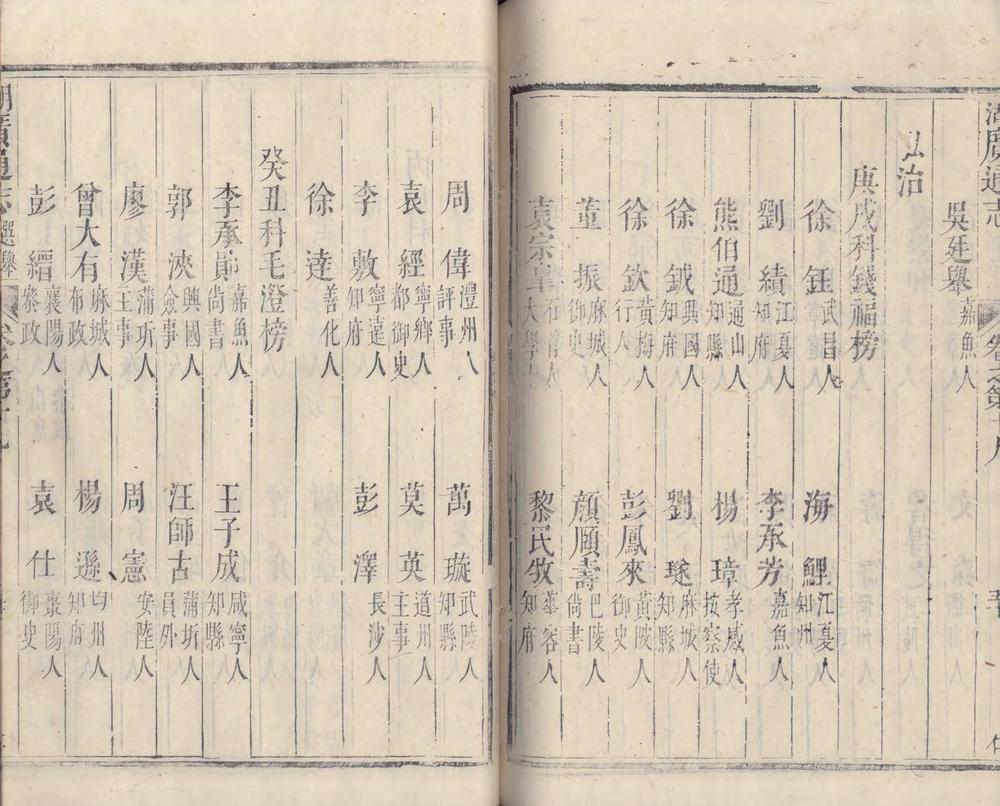 湖廣通志 卷之第十九
吳廷舉 嘉魚人
弘治
庚戌科錢福榜
徐鈺 武昌人 海鯉 江夏人知州
劉績 江夏人知府 李承芳 嘉魚人
熊伯通 通山人知縣 楊璋 孝感人按察使
徐鉞 興國人知府 劉璲 麻城人知縣
徐欽 黃梅人行人 彭鳳來 黃陂人御史
董振 麻城人御史 顏頤壽 巴陵人尚書
袁宗皐 石首人大學士 黎民牧 華容人知府
周偉 澧州人評事 萬璇 武陵人知縣
袁經 寧鄉人都御史 莫英 道州人主事
李敷 寧遠人知府 彭澤 長沙人
徐達 善化人
癸丑科毛澄榜
李承勛 嘉魚人尚書 王子成 咸寧人知縣
郭浹 興國人僉事 汪師古 蒲圻人員外
廖漢 蒲圻人主事 周憲 安陸人
曾大有 麻城人布政 楊遜 均州人知府
彭縉 襄陽人叅政 袁仕 棗陽人御史
湖廣通志 選舉 卷之第十九